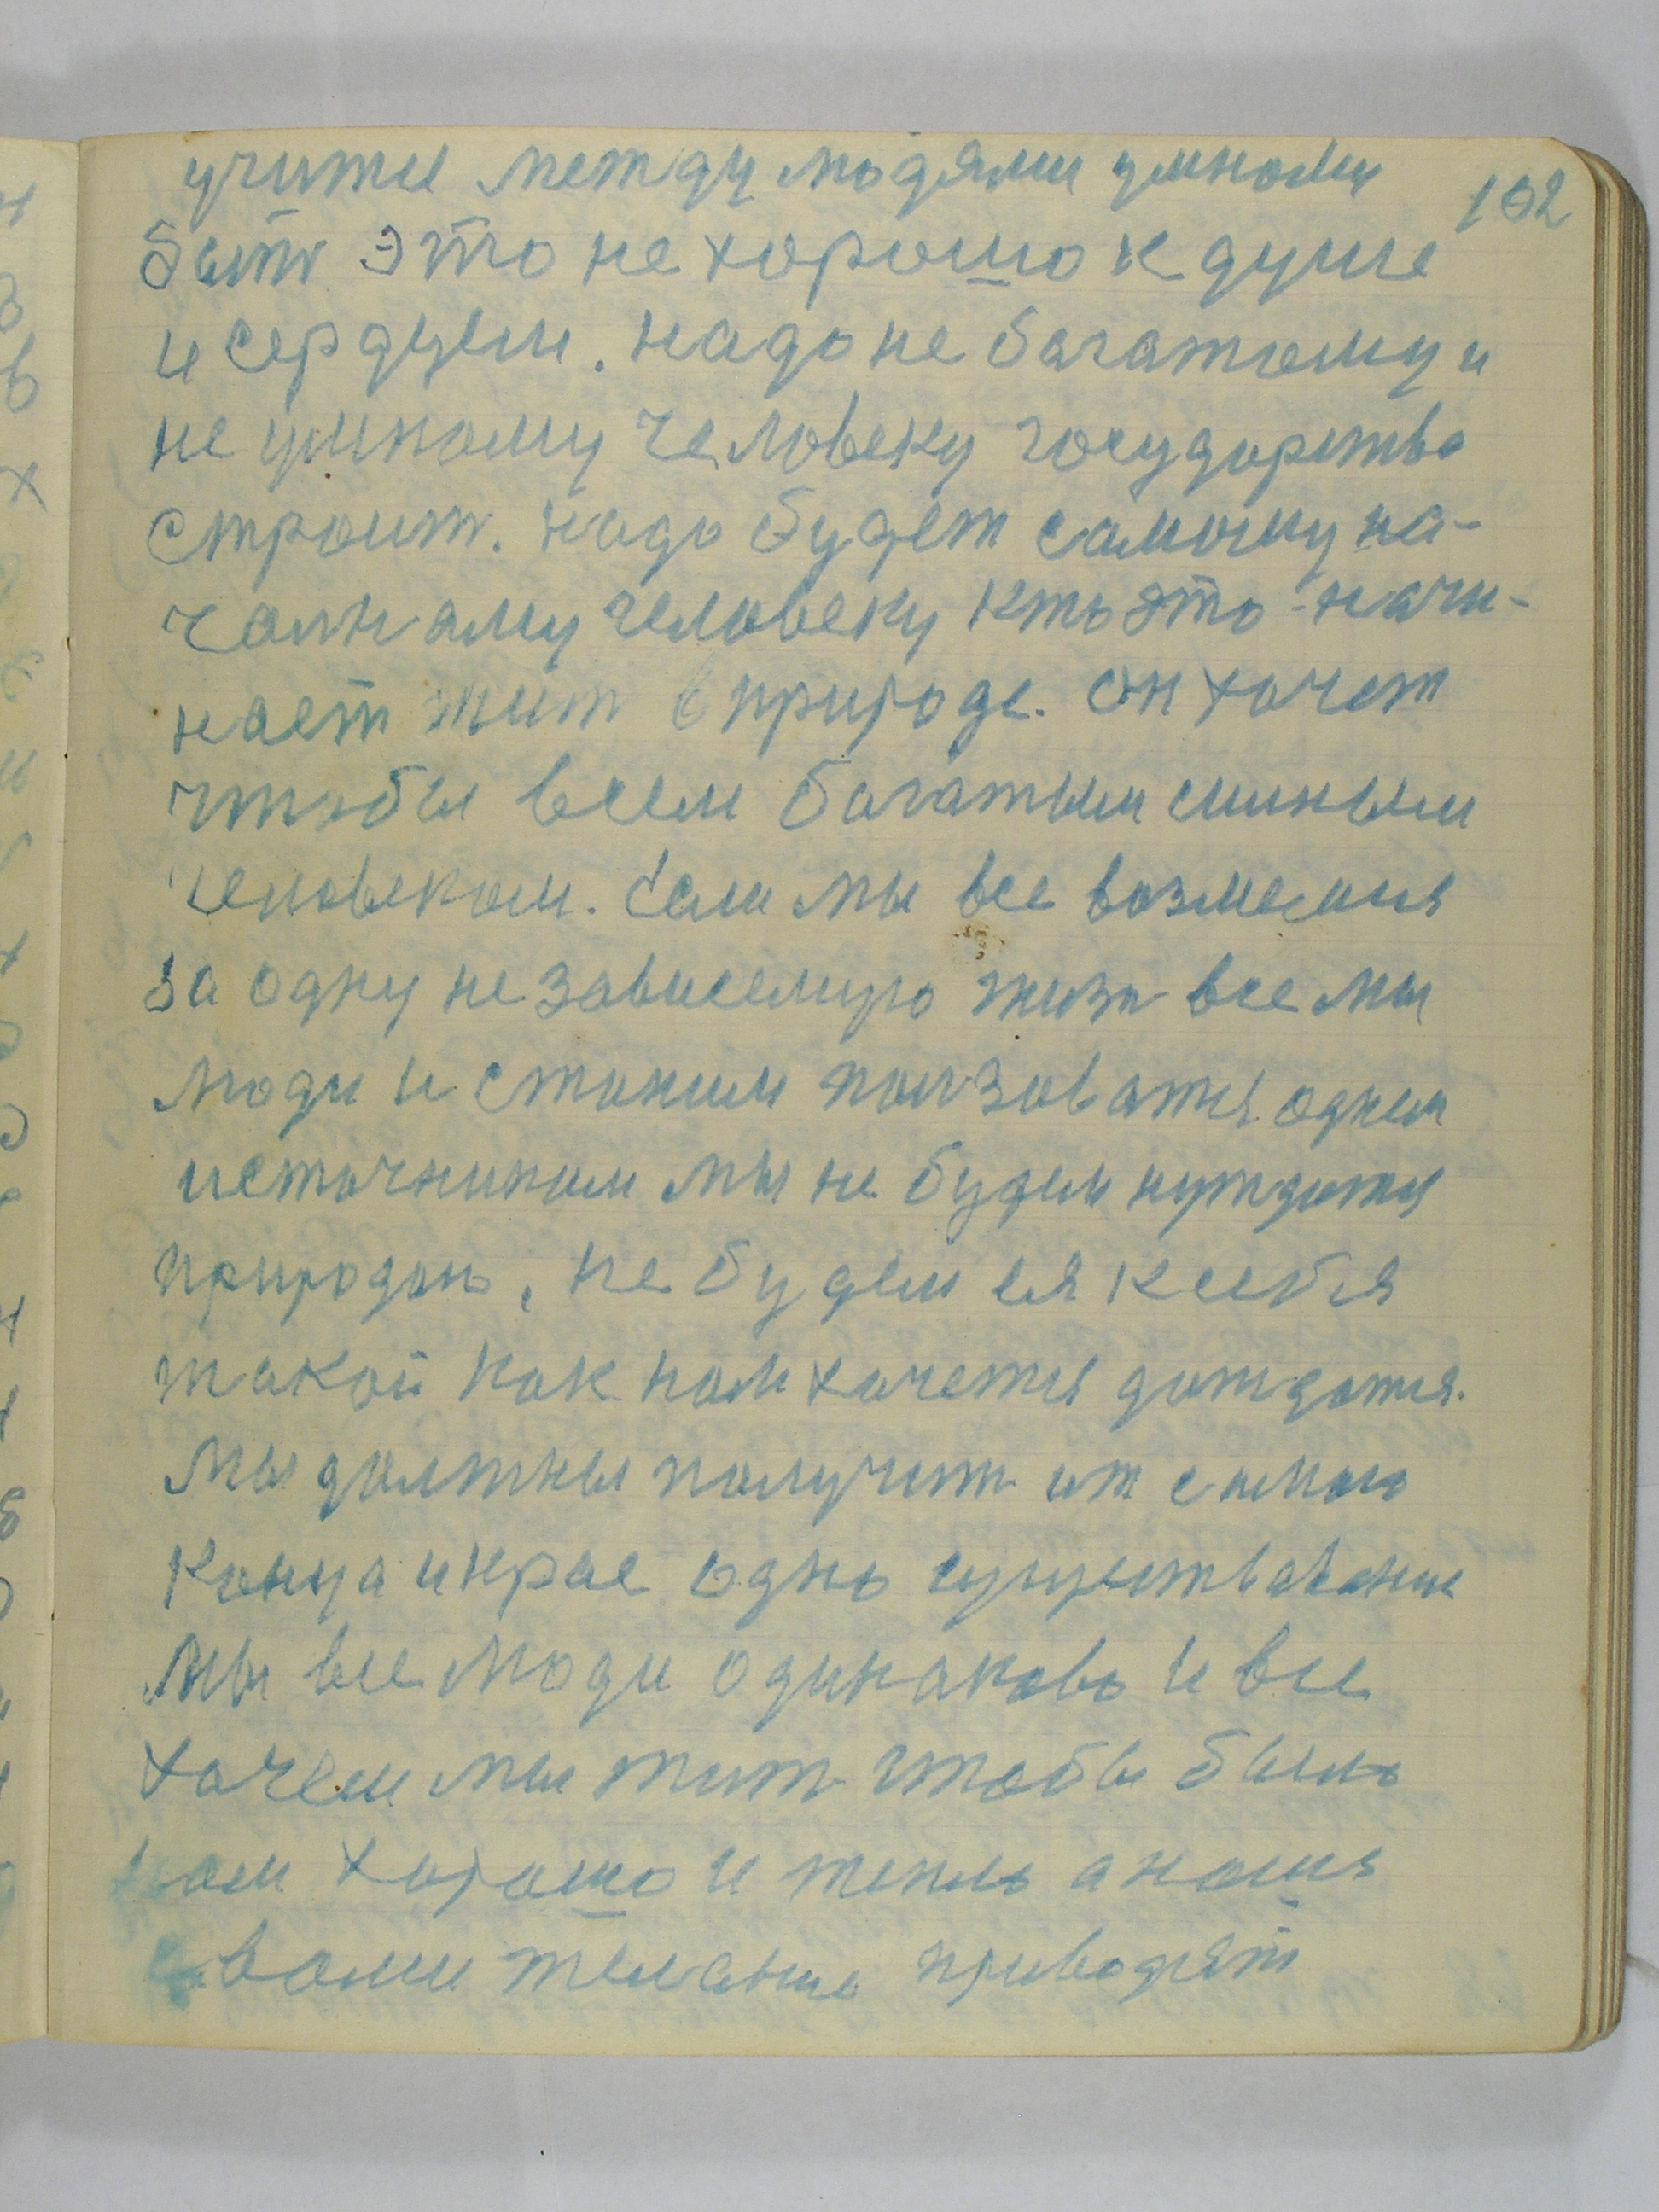 102
учится между людями умному
быть это не хорошо к душе
и сердцем. надо не богатому и
не умному человеку государство
строит. надо будет самому на-
чальнаму человеку кто это начи-
нает жит в природе. Он хочет
чтобы всем богатым сильным
человеком. Если мы все возмемся
за одну независемую жизн все мы
люди и станим ползоватся однем
источником мы не будем нуждатся
природою, не будем ея к себя
такой как нам хочется дождатся.
Мы должны получит от самого
конца и края одно существование
Мы все люди одинаково и все
хочем мы жит чтобы было
нам хорошо и тепло а наши
с вами желание приводят